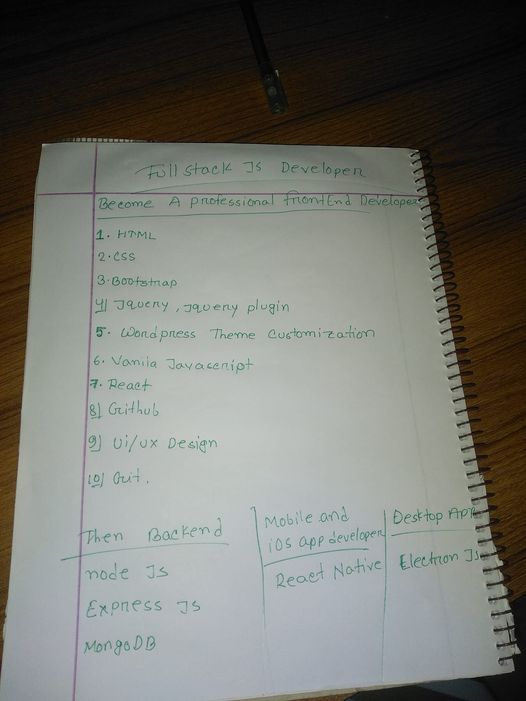 Full stack Js Developer
Become A professional frontEnd Developer
1. HTML
2. CSS
3. Bootstrap
4) Jquery, Jquery plugin
5. Wordpress Theme Customization
6. Vanila Javascript
7. React
8) Github
9) Ui/ux Design
10) Git.
Then Backend
node Js
Express Js
MongoDB
Mobile and
ios app developer
React Native
Desktop App
Electron Js